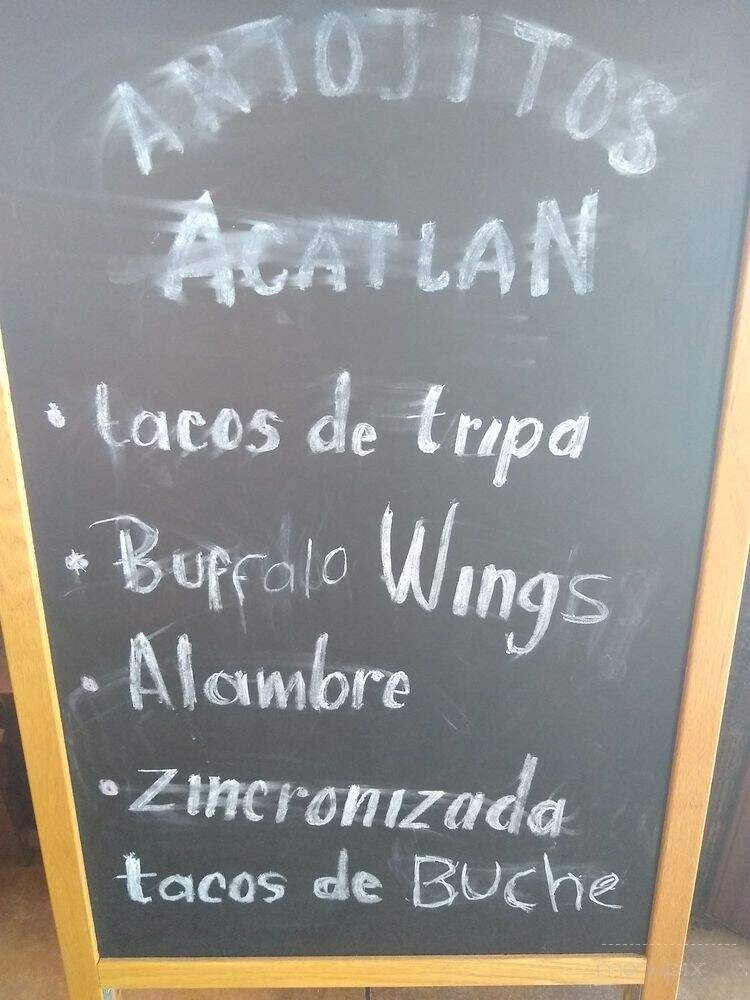 ANTOJITOS
ACATLAN
• tacos de tripa
• Buffalo Wings
• Alambre
• Zincronizada
tacos de Buche